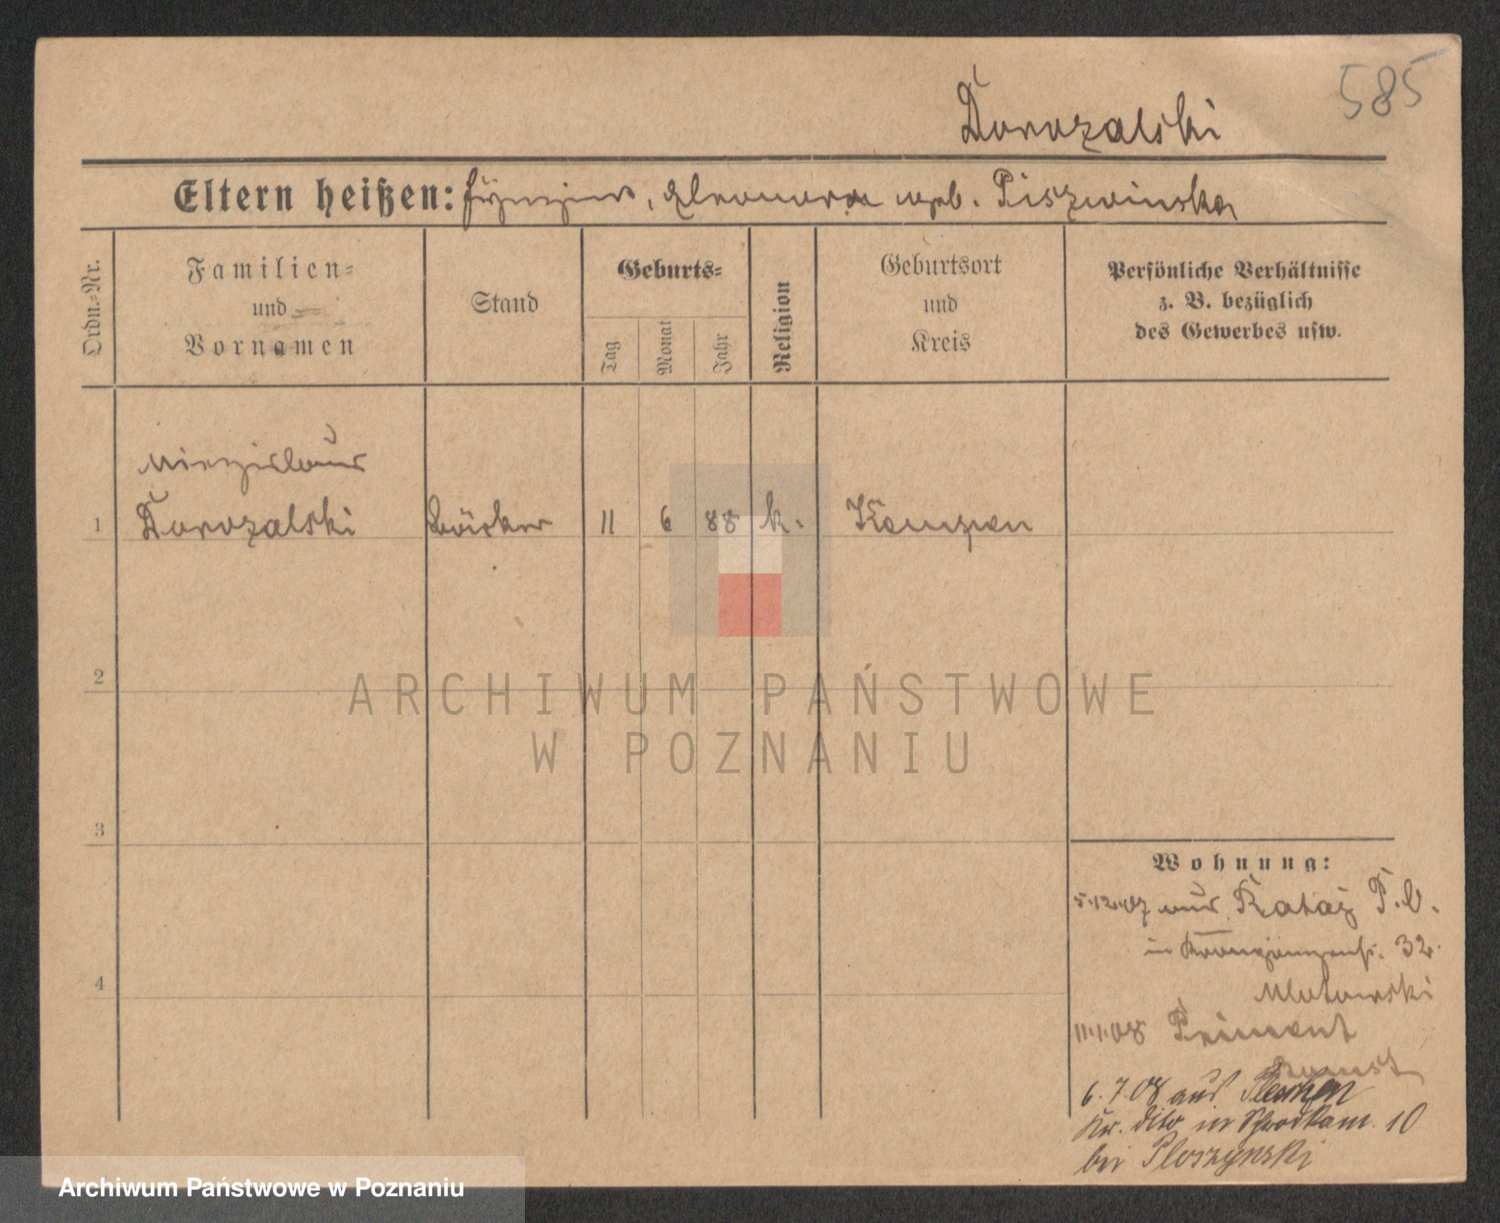 585
Dorozalski
Eltern heißen: Eleonora geb. Piszwinska
Ordn.-Nr.
Familien-
und
Vornamen
Stand
Geburts-
Tag
Monat
Jahr
Religion
Geburtsort
und
Kreis
Persönliche Verhältnisse
z. B. bezüglich
des Gewerbes usw.
Miezislaus
1 Dorozalski Bäcker 11 6 88 k. Kempen
2
3
4
Wohnung:
5.12.07 aus Rataj P. O.
in 32.
Mlotowski
11.1.08 
6.7.08 aus Pleschen
Kr. dito in 10
bei Ploszynski
ARCHIWUM PAŃSTWOWE
W POZNANIU
Archiwum Państwowe w Poznaniu